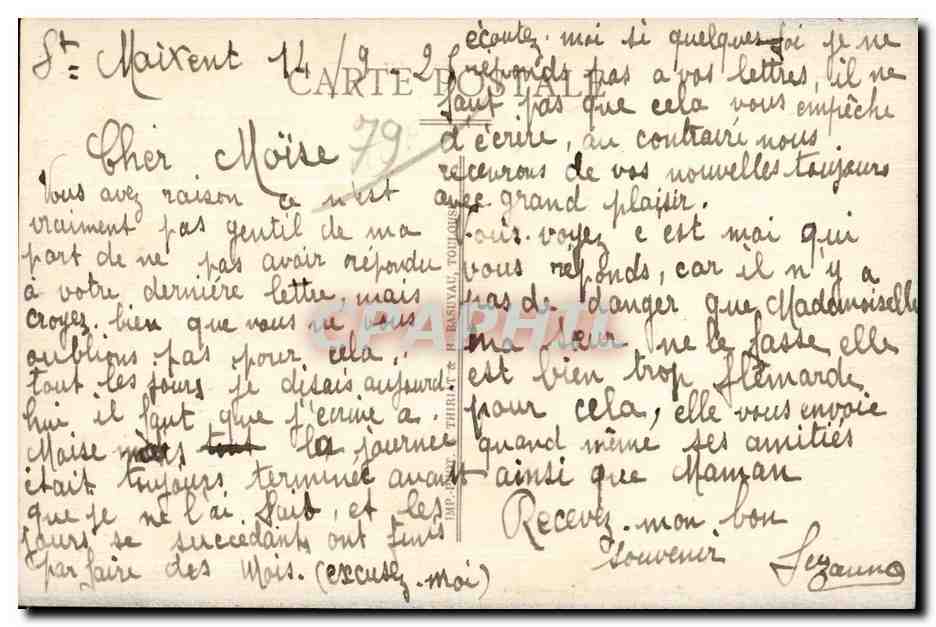 St Maixent 14/9-2
CARTE POSTALE
79
Cher Moïse
Vous avez raison ce n'est
vraiment pas gentil de ma
part de ne pas avoir répondu
à votre dernière lettre, mais
croyez-bien que vous ne vous
oublions pas pour cela,
tout les jours je disais aujourd
hui il faut que j'écrive a
Moise mais la journée
était toujours terminée avant
que je ne l'ai fait, et les
jours se succédant ont finis
par faire des Mois. (excusez-moi)
écoutez-moi si quelques foi je ne
réponds pas a vos lettres, il ne
faut pas que cela vous empêche
d'écrire, au contraire nous
recevrons de vos nouvelles toujours
avec grand plaisir.
Vous voyez c est moi qui
vous réponds, car il n'y a
pas de danger que Mademoiselle
ma sœur ne le fasse elle
est bien trop flémarde
pour cela, elle vous envoie
quand même ses amitiés
ainsi que Maman
Recevez-mon bon
souvenir
Suzanne
IMP.-PHOT. THIRIAT & M. BASUYAU, TOULOUSE
CPAPHIL